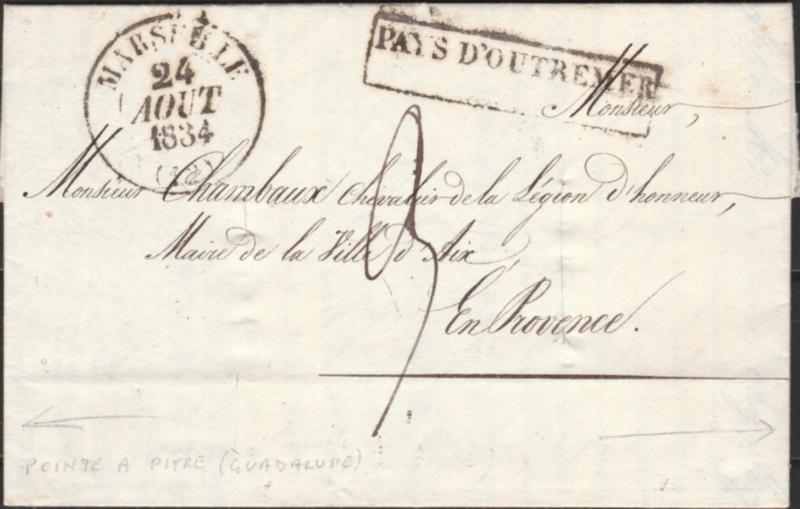 MARSEILLE
24
AOUT
1834
(12)
PAYS D'OUTREMER
Monsieur,
Monsieur Chambaux Chevalier de la Légion d'honneur,
Maire de la Ville d'Aix,
En Provence.
POINTE A PITRE (GUADALUPE)